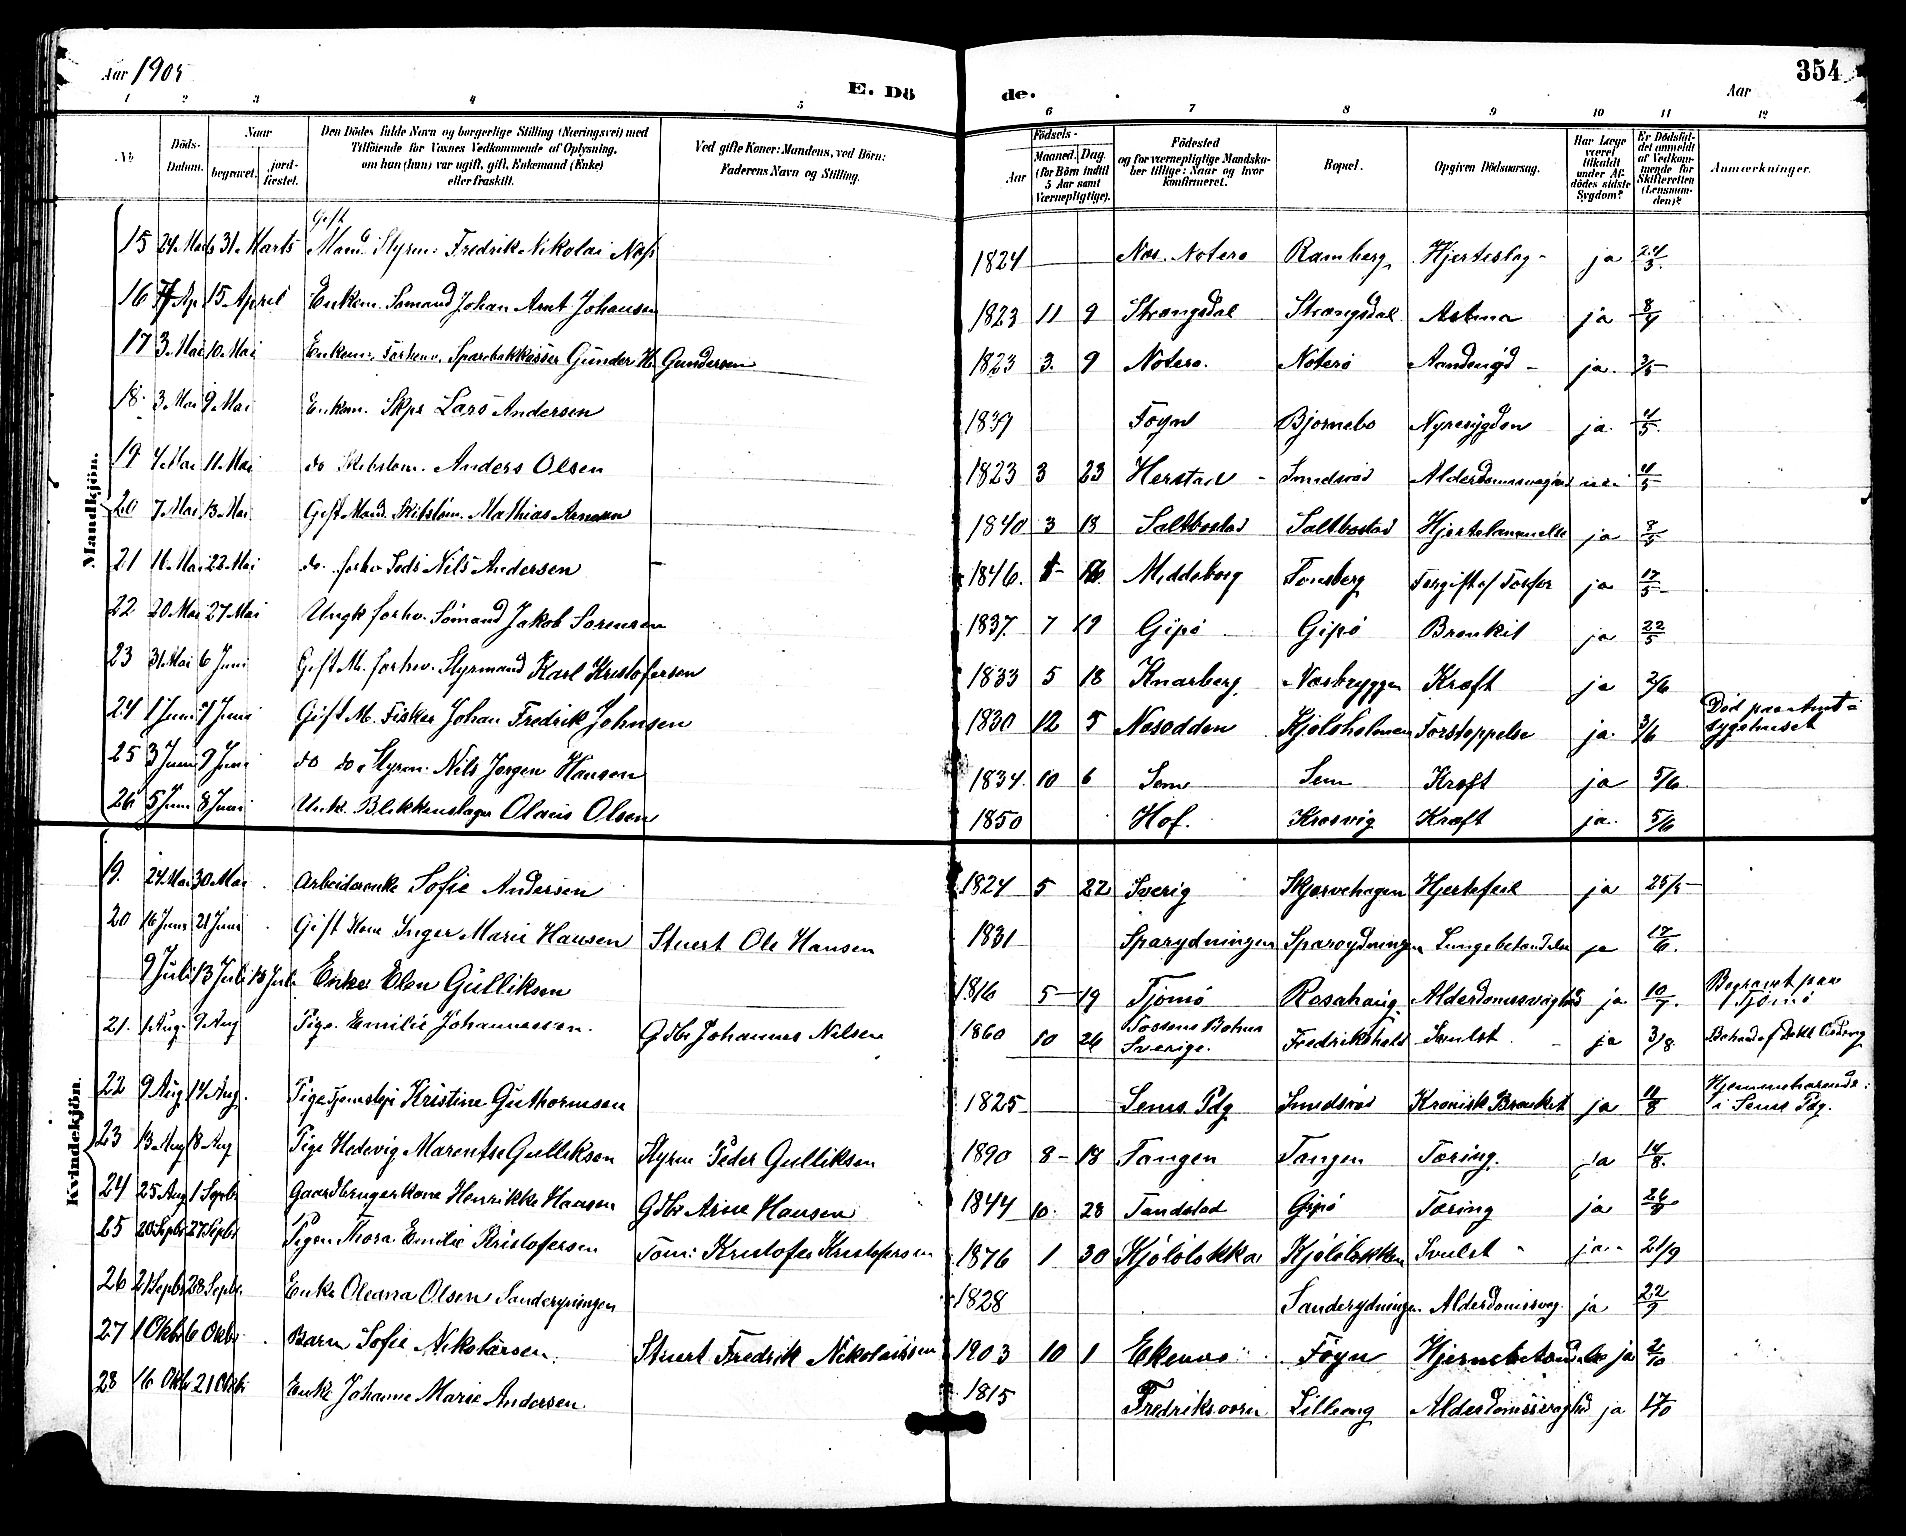 Aar 1905
E. Dö
de.
Aar
354
1 2 3 4 5 6 7 8 9 10 11 12
No
Döds-Datum.
Naar
begravet.
jord-fæstet.
Den Dödes fulde Navn og borgerlige Stilling (Næringsvei) med
Tilföiende for Voxnes Vedkommende af Oplysning,
om han (hun) var ugift, gift, Enkemand (Enke)
eller fraskilt.
Ved gifte Koner: Mandens, ved Börn:
Faderens Navn og Stilling.
Födsels-
Aar
Maaned. Dag.
(for Börn indtil 5 Aar samt Værnepligtige).
Födested
og for værnepligtige Mandskaber tillige: Naar og hvor konfirmeret.
Bopæl.
Opgiven Dödsaarsag.
Har Læge været tilkaldt under Afdödes sidste Sygdom?
Er Dödsfaldet anmeldt af Vedkommende for Skifteretten (Lensmanden)?
Anmærkninger.
Mandkjön.
Gift
15 24 Mars 31 Marts Mand Styrm: Fredrik Nikolai Næss 1824 Næs. Noterø Ramberg Hjerteslag ja 24/3
16 Ap 15 April Enkem. Sømand Johan Arnt Johansen 1823 11 9 Strængsdal Strængsdal Astma ja 8/4
17 3 Mai 10 Mai Enkem. Forhenv. Sparebakkasser Gunder H. Gundersen 1823 3 9 Noterø Noterø Aandenød ja 3/5
18 3 Mai 9 Mai Enkem. Skps Lars Andersen 1839 Føyn Bjørnebo Nyresygdom ja 4/5
19 4 Mai 11 Mai do Skibstøm. Anders Olsen 1823 3 23 Herstad Smidsrød Alderdomssvaghed nei 4/5
20 7 Mai 13 Mai Gift Mand. Skibstøm. Mathias Arnesen 1840 3 18 Saltbostad Saltbostad Hjertelammelse ja 8/5
21 16 Mai 22 Mai do forhv. Nils Andersen 1846 16 Meddeborg Tønsberg Forgift af Fosfor ja 17/5
22 20 Mai 27 Mai Ungk forhv. Sømand Jakob Sørensen 1837 7 19 Gipø Gipø Bronkit ja 22/5
23 31 Mai 6 Juni Gift M. forhv. Styrmand Karl Kristofersen 1833 5 18 Knarberg Næsbryggen Kræft ja 2/6
24 1 Juni 7 Juni Gift M. Fisker Johan Fredrik Johnsen 1830 12 5 Nesodden Kjøløholmen Forstoppelse ja 3/6 Død paa Amtsygehuset
25 3 Juni 9 Juni do do Styrm. Nils Jørgen Hansen 1834 10 6 Sem Sem Kræft ja 5/6
26 5 Juni 8 Juni Unk. Blikkenslager Olaus Olsen 1850 Hof. Krosvig Kræft ja 5/6
Kvindekjön.
19. 24 Mai 30 Mai Arbeiderenke Sofie Andersen 1824 5 22 Sverig Skjærvehagen Hjertefeil ja 25/5
20 16 Juni 21 Juni Gift Kone Inger Marie Hansen Stuert Ole Hansen 1831 Sparydningen Sparydningen Lungebetændelse ja 17/6
9 Juli 13 Juli 13 Juli Enke Elen Gulliksen 1816 5 19 Tjømø Rosahaug Alderdomssvaghed ja 10/7 Begravet paa Tjømø
21. 1 Aug 9 Aug Pige. Emilie Johannessen. Gdbr Johannes Nilsen 1860 10 26 Sverige. Fredrikshald Svulst ja 3/8
22 9 Aug 14 Aug. Pige Tjenstepi Kristine Guthormsen 1825 Sems Pdg Smidsrød Kronisk Bronket ja 10/8 Hjemmehørende i Sems Pdg.
23 13 Aug 18 Aug Pige Hedevig Marentse Gulliksen Styrm Peder Gulliksen 1890 8 18 Tangen Tangen Tæring ja 14/8
24 25 Aug 1 Septbr Gaardbrugerkone Henrikke Hansen Gdbr Arne Hansen 1844 10 28 Tandstad Gipø Tæring ja
25 20 Septbr 27 Septbr Pigen Thora Emilie Kristofersen Tøm: Kristofer Kristofersen 1876 1 30 Kjøløløkka Kjøløløkken Svulst ja 21/9
26 21 Septbr 28 Septbr. Enke Oleana Olsen Sanderydningen 1828 Sanderydningen Alderdomssvag. ja 22/9
27 1 Oktbr 6 Oktbr Barn Sofie Nikolaisen Stuert Fredrik Nikolaissen 1903 10 1 Ekenes Føyn Hjernebetændelse ja 2/10
28 16 Oktbr 21 Oktbr Enke Johanne Marie Andersen 1815 Fredriksværn Lilleeng Alderdomssvaghed ja 17/10